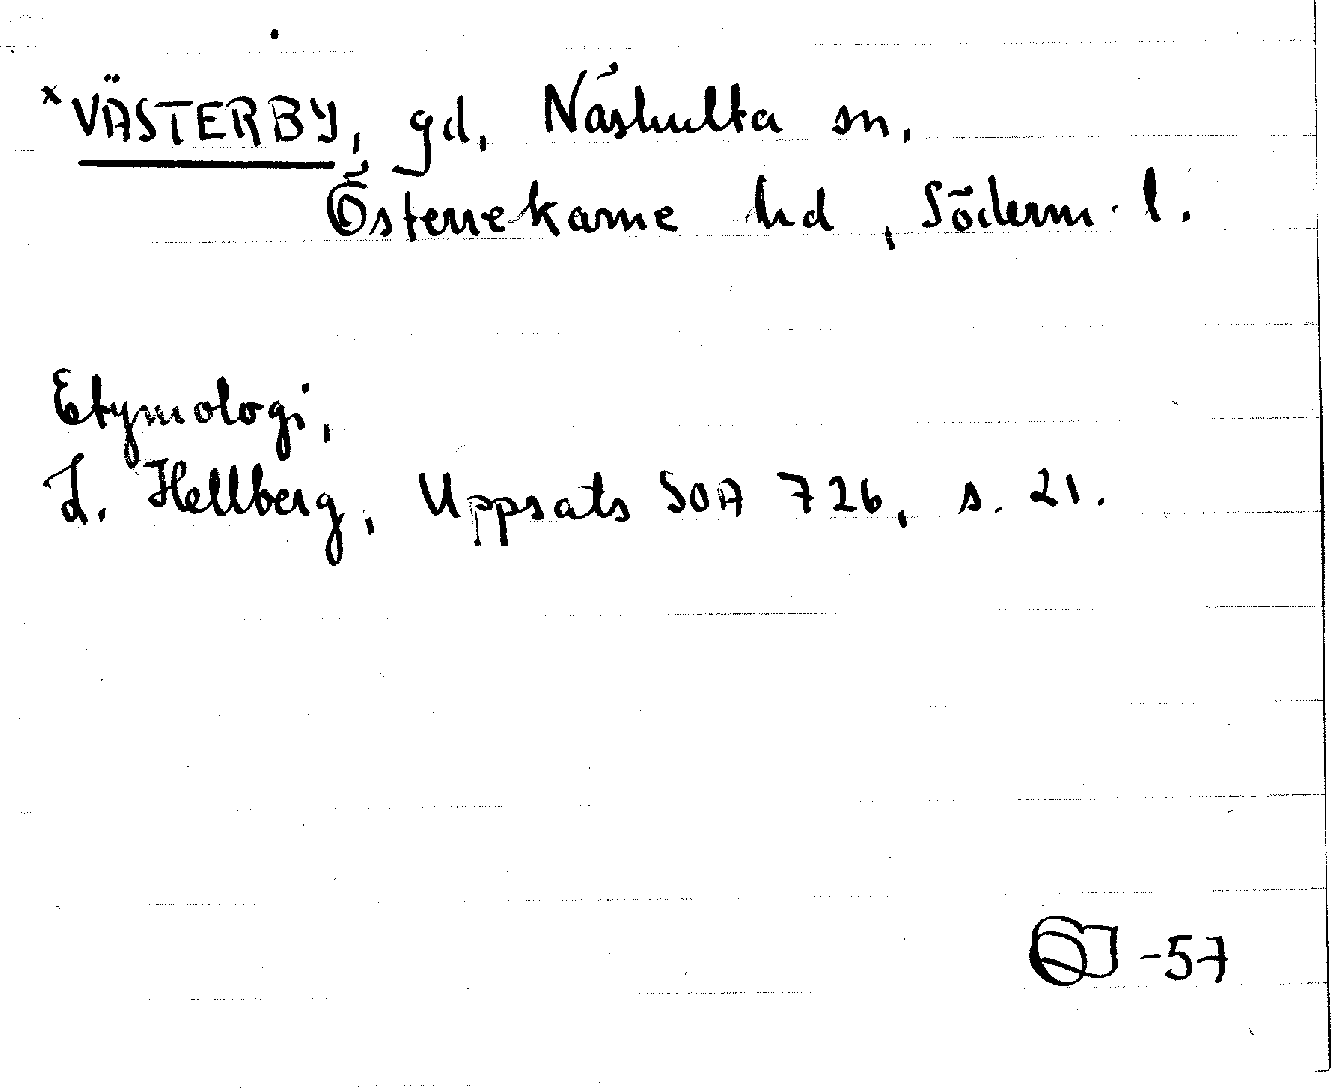 ×VÄSTERBY, gd, Näshulta sn,
Österrekarne hd, Söderm. l.
Etymologi,
L. Hellberg, Uppsats SOA 726, s. 21.
-57